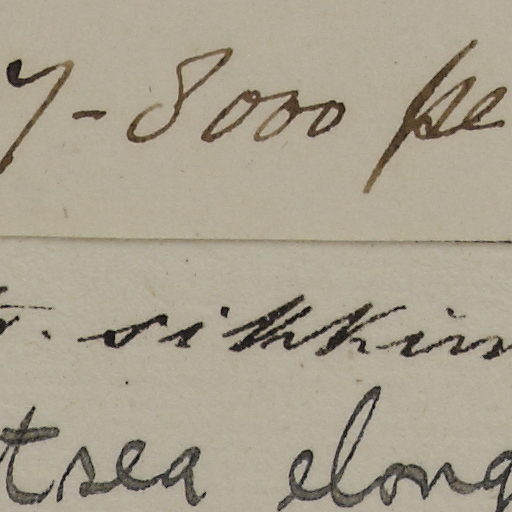 7-8000 pe
r. sikkim
tsea elong